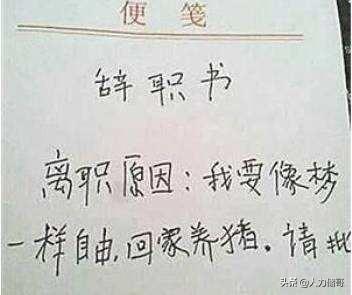 便笺
辞职书
离职原因：我要像梦
一样自由，回家养猪。请批
头条 @人力葵哥